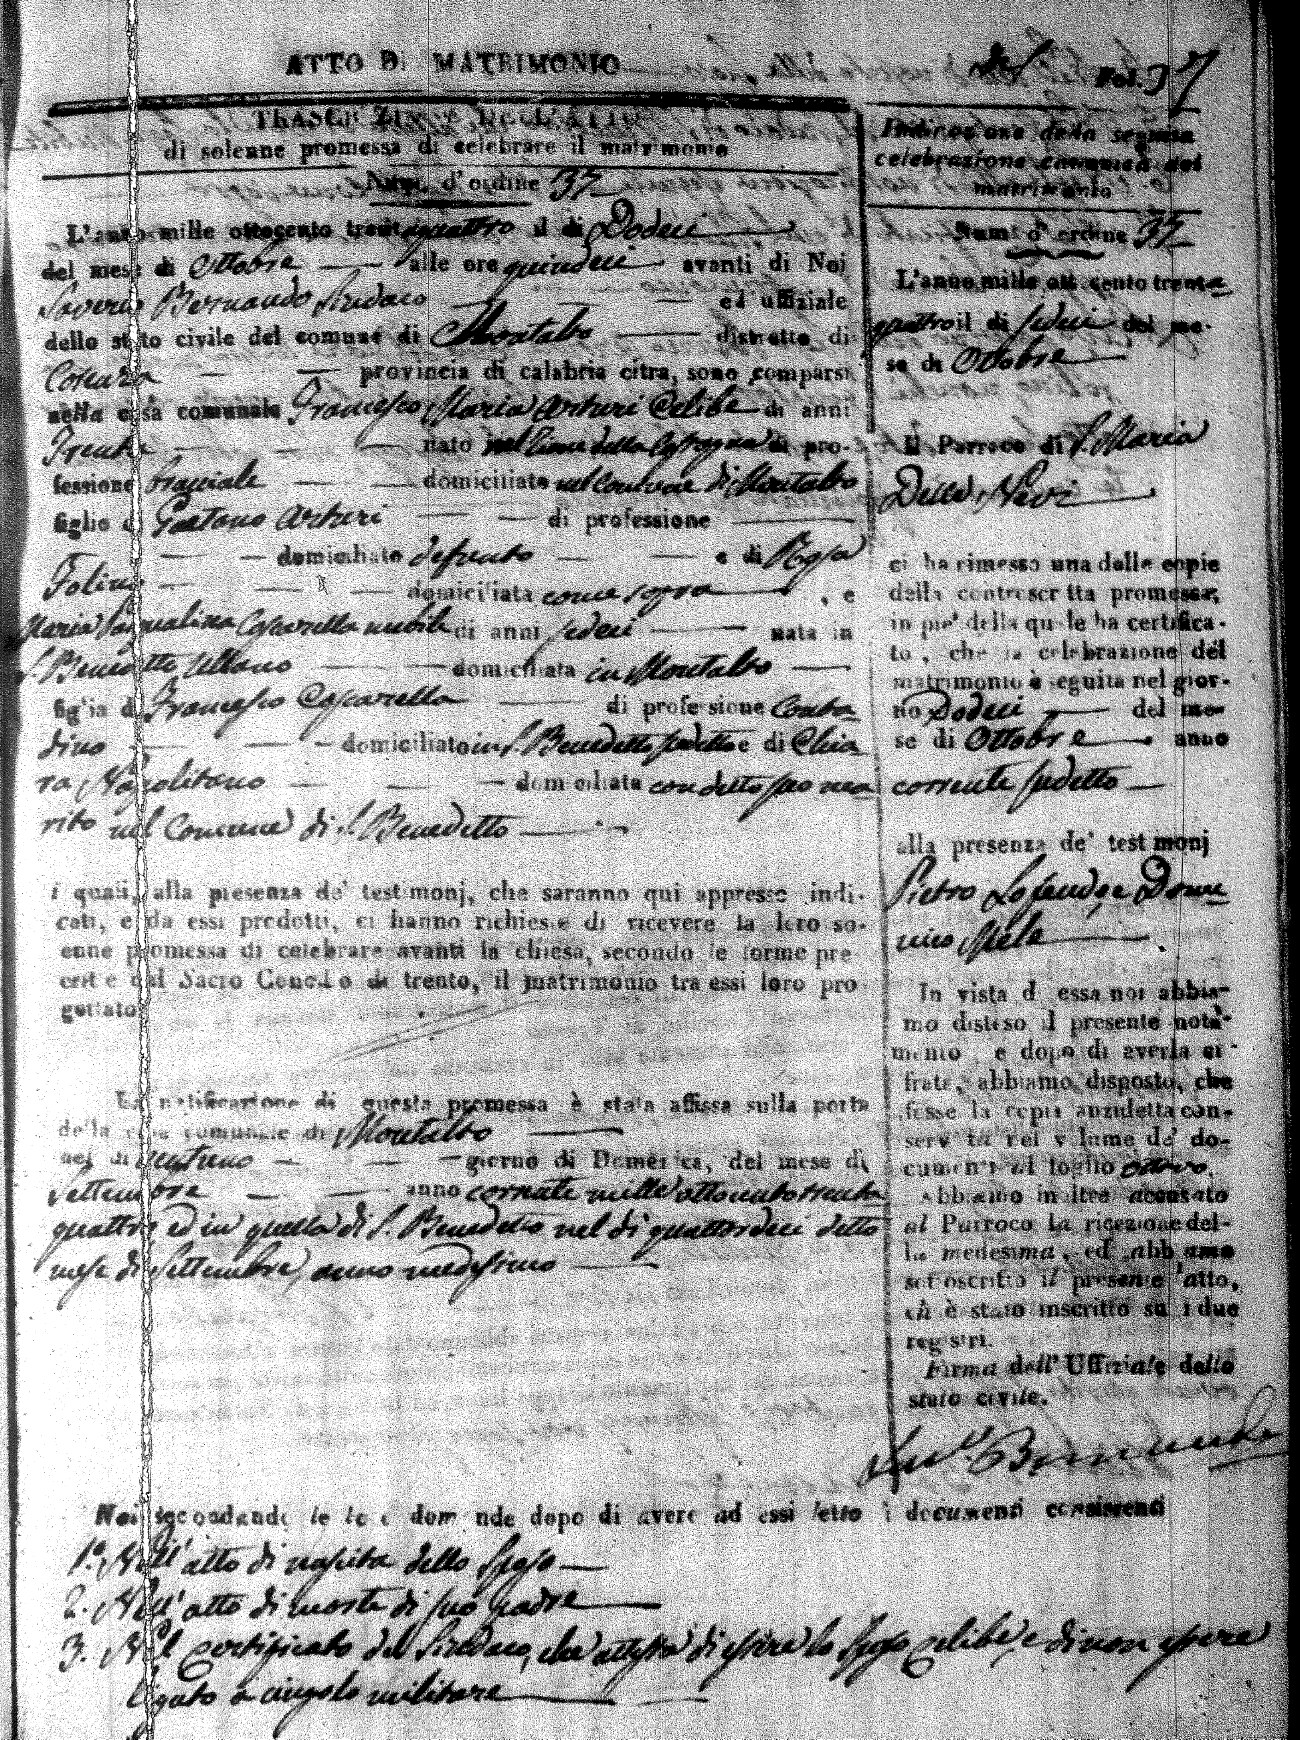 ATTO DI MATRIMONIO
del Fol. 37
di solenne promessa di celebrare il matrimonio
Num. d'ordine 37
L'anno mille ottocento trentaquattro il di Dodeci
del mese di Ottobre alle ore quindeci avanti di Noi
Saverio Bernaudo Sindaco ed uffiziale
dello stato civile del comune di Montalto distretto di
Cosenza provincia di calabria citra, sono comparsi
nella casa comunale Francesco Maria Arturi Celibe di anni
Trenta nato di pro-
fessione bracciale domiciliato nel Comune di Montalto
figlio di Gaetano Arturi di professione
domiciliato defunto e di Rosa
Folino domiciliata come sopra, e
Maria Pasqualina Cosparella nubile di anni sedeci nata in
S. Benedetto Ullano domiciliata in Montalto
figlia di Francesco Cosparella di professione Conta-
dino domiciliato in S. Benedetto sudetto e di Chia
ra Napolitano domiciliata con detto suo ma
rito nel Comune di S. Benedetto
i quali, alla presenza de' testimonj, che saranno qui appresso indi-
cati, e da essi prodotti, ci hanno richiesto di ricevere la loro so-
enne promessa di celebrare avanti la chiesa, secondo le forme pre
crit e dal Sacro Concilio di trento, il matrimonio tra essi loro pro
gettato
La notificazione di questa promessa è stata affissa sulla porta
della casa comunale di Montalto
nel di ventuno giorno di Domenica, del mese di
Settembre anno corrente mille ottocento trenta
quattro ed in quella di S. Benedetto nel di quattordeci detto
mese di Settembre, anno medesimo
Indicazione della seguita
celebrazione canonica del
matrimonio
Num. d'ordine 37
L'anno mille ottocento trenta-
quattro il di sedeci del me-
se di Ottobre
Il Parroco di S. Maria
Della Nevi
ci ha rimesso una delle copie
della controscritta promessa,
in pie' della quale ha certifica-
to, che la celebrazione del
matrimonio è seguita nel gior-
no Dodeci del me-
se di Ottobre anno
corrente sudetto
alla presenza de' testimonj
Pietro e Dome-
nico
In vista di essa noi abbia-
mo disteso il presente nota-
mento, e dopo di averla ci-
frata, abbiamo disposto, che
fosse la copia anzidetta con-
servata nel volume de' do-
cumenti al foglio ottavo
Abbiamo inoltre accusato
al Parroco la ricezione del-
la medesima, ed abbiamo
sottoscritto il presente atto,
ch è stato inscritto su i due
registri.
Firma dell' Uffiziale dello
stato civile.
Sav. Bernaudo
Noi secondando le loro domande dopo di avere ad essi letto i documenti consistenti
1.° Nell' atto di nascita dello Sposo
2. Nell' atto di morte di suo padre
3. Nel certificato del Sindaco, che attesta di essere lo Sposo celibe, e di non essere
ligato a cingolo militare